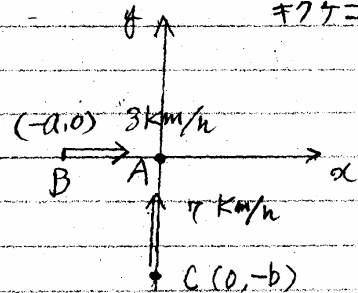 キクケコ
y
(-a,0) 3km/h
B A x
7 km/h
C (0,-b)